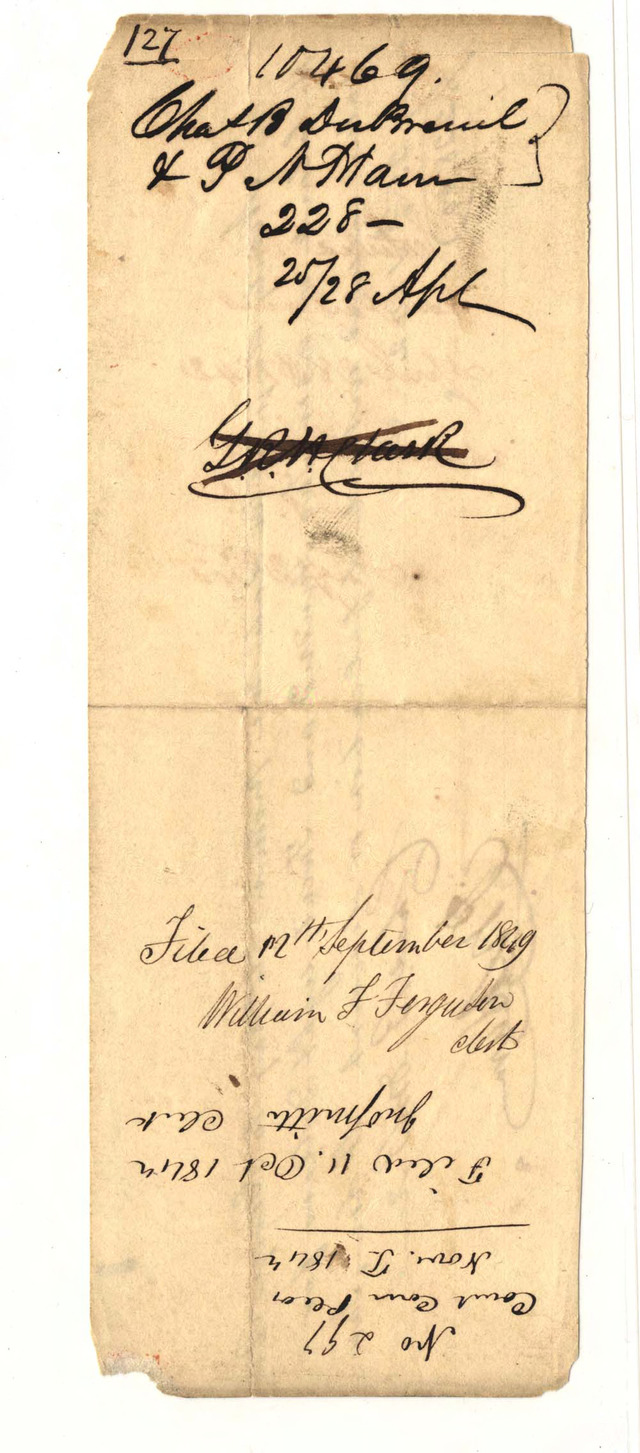 127
10469.
Chas B DuBreuil
& P N Ham
228 –
25/28 Apl
G.R.H. Clark
Filed 12th September 1849
William F Ferguson
clerk
No 297
Court Com Pleas
Nov. T. 1842
Filed 11. Oct 1842
Jno Smith Clerk